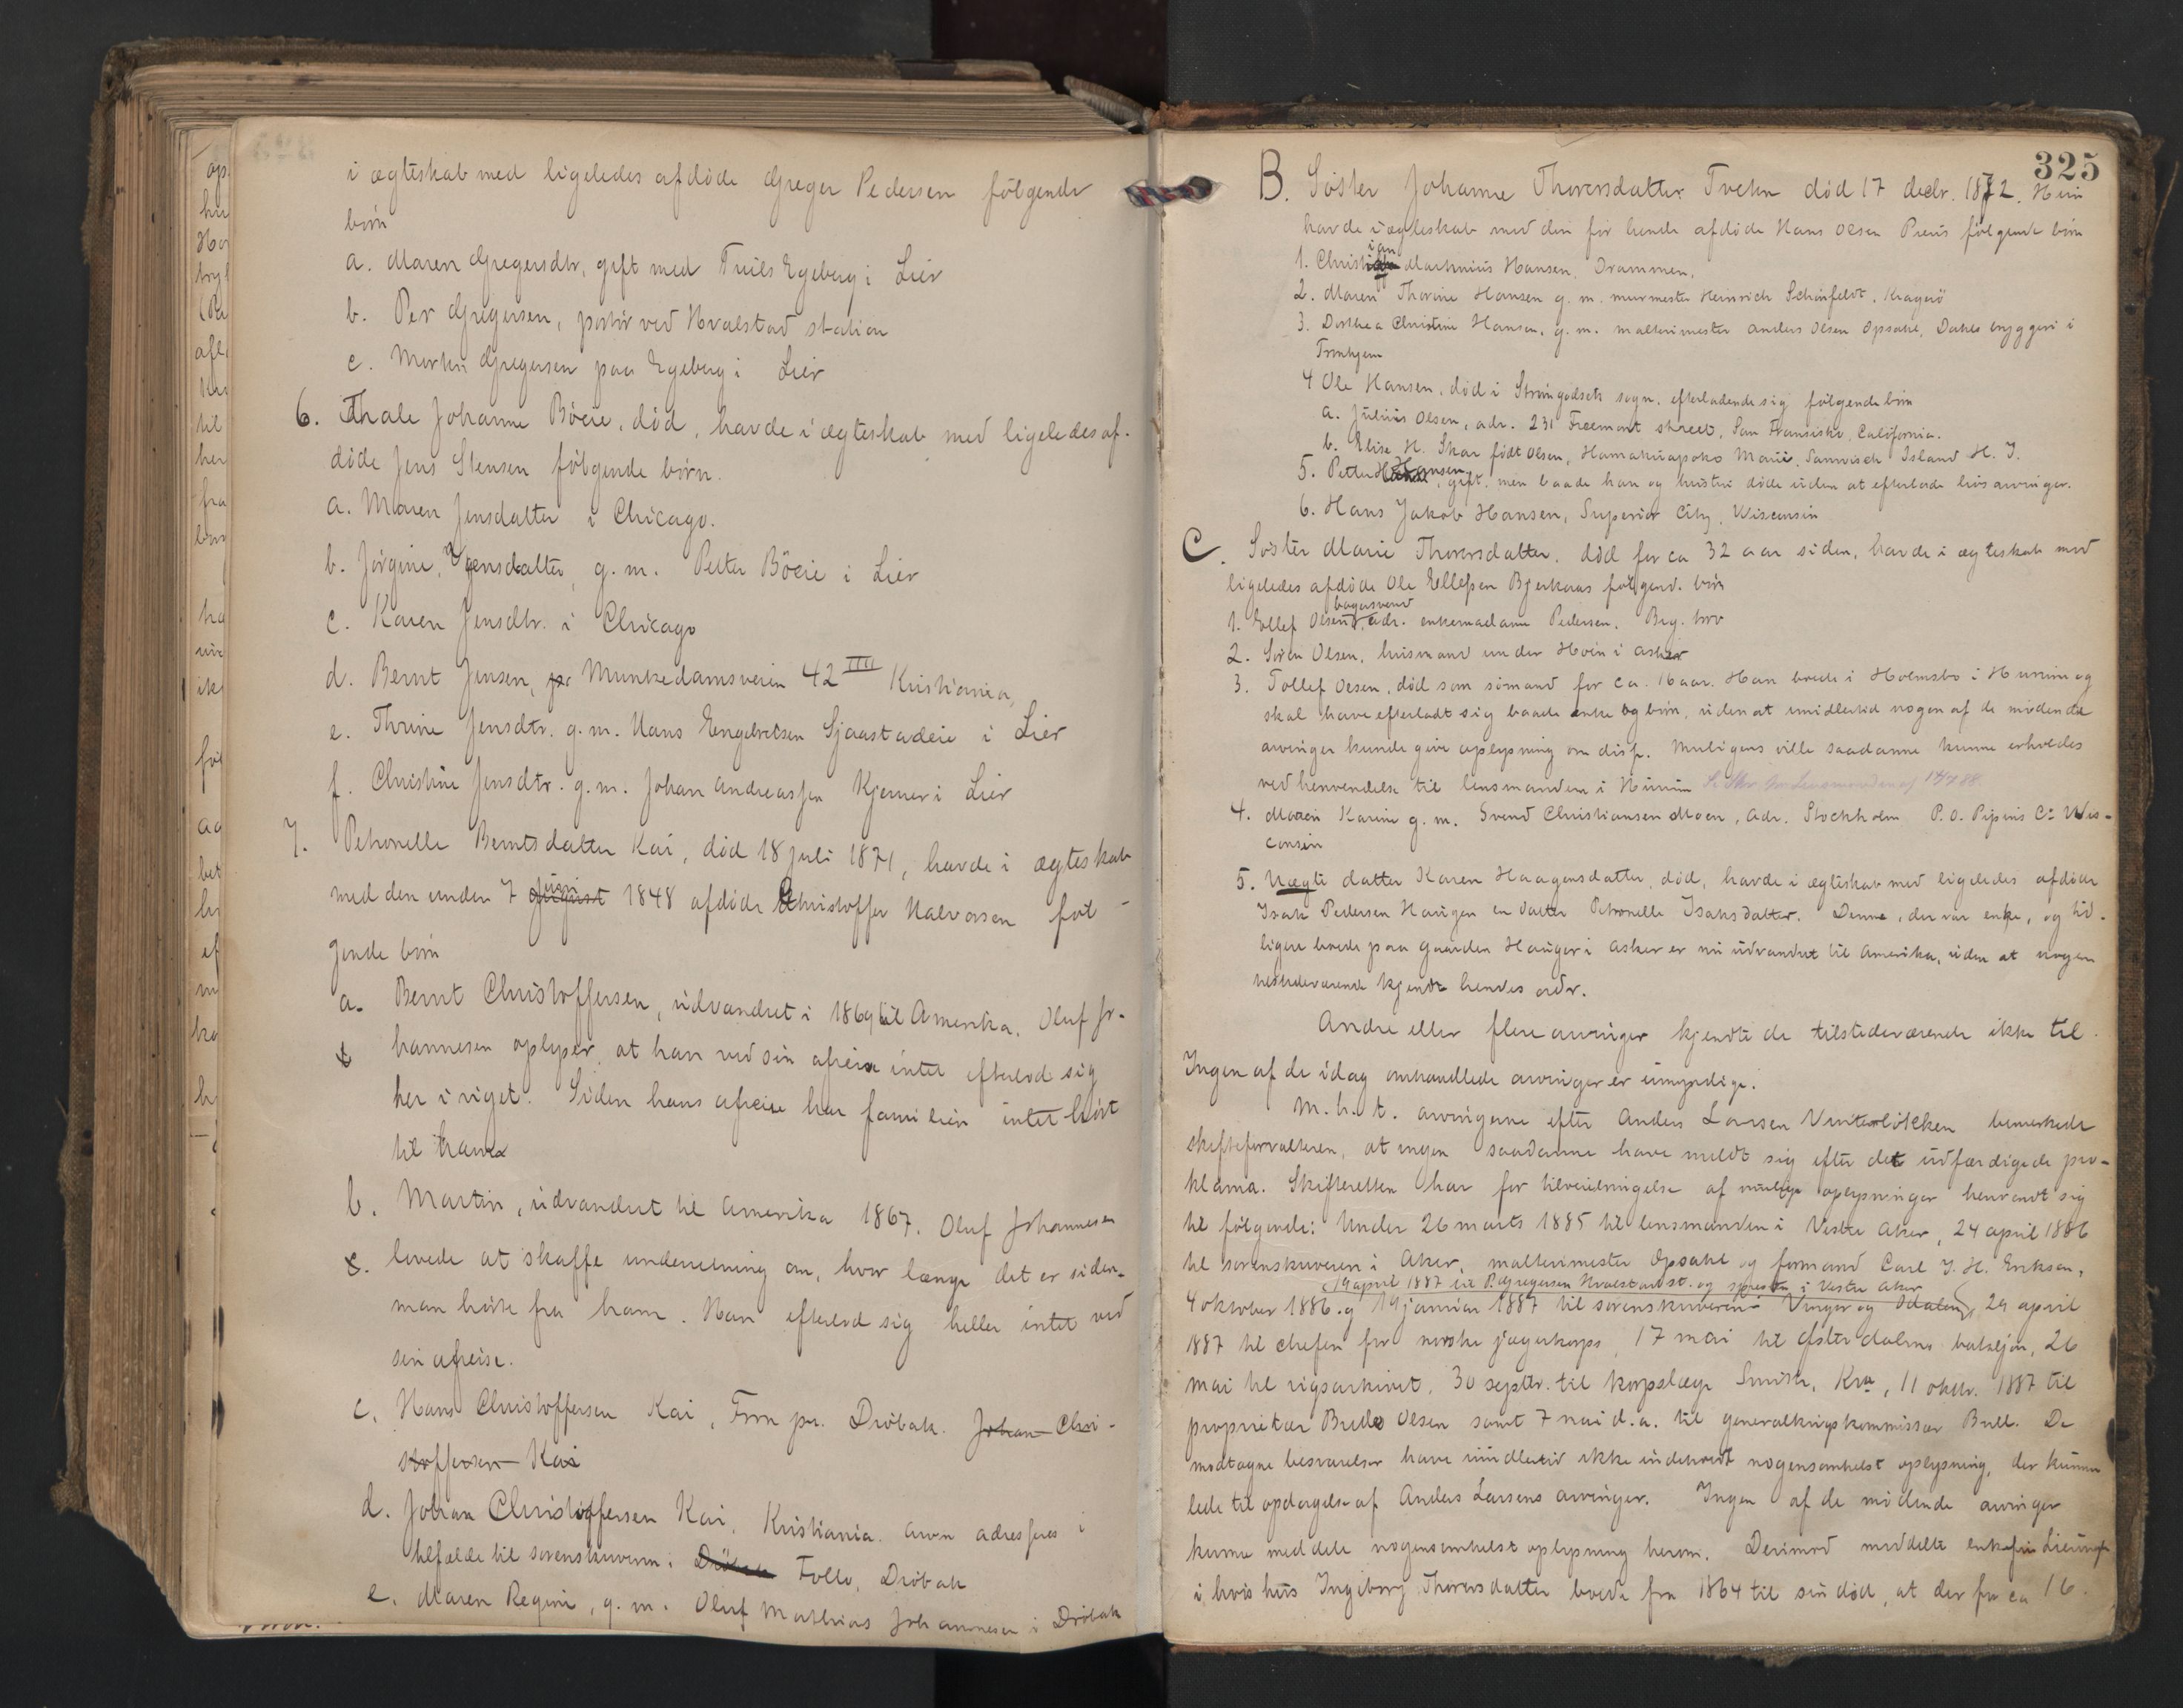 i ægteskab med ligeledes afdöde Greger Pedersen fölgende
börn
a. Maren Gregersdtr, gift med Truls Egeberg i Lier
b. Per Gregersen, portör ved Hvalstad station
c. Marthin Gregersen paa Egeberg i Lier
6. Thale Johanne Böeie, död, havde i ægteskab med ligeledes af-
döde Jens Stensen fölgende börn.
a. Maren Jensdatter i Chicago.
b. Jörgine Jensdatter, g. m. Petter Böeie i Lier
c. Karen Jensdtr. i Chicago
d. Bernt Jensen, Munkedamsveien 42 III Kristiania,
e. Thrine Jensdtr. g. m. Hans Engebretsen Gjaastadeie i Lier
f. Christine Jensdtr. g. m. Johan Andreassen Kjerner i Lier
7. Petronelle Berntsdatter Kai, död 18 juli 1871, havde i ægteskab
med den under 7 august juni 1848 afdöde Christoffer Halvorsen föl-
gende börn
a. Bernt Christoffersen, udvandret i 1869 til Amerika. Oluf Jo-
hannesen oplyser, at han ved sin afreise intet efterlod sig
her i riget. Siden hans afreise har familien intet hört
til ham
b. Martin, udvandret til Amerika 1867. Oluf Johannesen
lovede at skaffe underretning om, hvor længe det er siden
man hörte fra ham. Han efterlod sig heller intet ved
sin afreise.
c. Hans Christoffersen Kai, Fron pr. Dröbak. Johan Chri-
stoffersen Kai
d. Johan Christoffersen Kai, Kristiania. Arven adresseres i
tilfælde til sorenskriveren i Dröbak Follo, Dröbak
e. Maren Regine, g. m. Oluf Mathias Johannesen i Dröbak
325
B. Söster Johanne Thorersdatter Tveten död 17 decbr. 1872. Hun
havde i ægteskab med den för hende afdöde Hans Olsen Preus fölgende börn
1. Christian Marthinius Hansen, Drammen.
2. Maren Thorine Hansen g. m. murmester Heinrich Schönfeldt, Kragerö
3. Dorthea Christine Hansen, g. m. maltermester Anders Olsen Opsahl, Dahls bryggeri i
Tronhjem
4 Ole Hansen, död i Strömgodsets sogn, efterladende sig fölgende börn
a. Julius Olsen, adr. 231 Freemont street, San Fransisko, California.
b. Elise H. Skar födt Olsen, Hamakuapoko Maui, Sanwisch Island H. I.
5. Petter Hansen, gift, men baade han og hustru döde uden at efterlade livsarvinger.
6. Hans Jakob Hansen, Superior City, Wisconsin
C. Söster Marie Thorersdatter, död for ca 32 aar siden, havde i ægteskab med
ligeledes afdöde Ole Ellefsen Bjerkaas fölgende börn
1. Ellef Olsen, bagersvend adr. enkemadame Pedersen. Brg. bro
2. Sören Olsen, husmand under Hvin i Asker
3. Tollef Olsen, död som sömand for ca. 16 aar. Han boede i Holmsbo i Hurum og
skal have efterladt sig baade enke og börn, uden at imidlertid nogen af de mödende
arvinger kunde give oplysning om disse. Muligens ville saadanne kunne erholdes
ved henvendelse til lensmanden i Hurum
4. Maren Karine g. m. Svend Christiansen Moen, adr. Stockholm P. O. Pipins Co Wis-
consin
5. Uægte datter Karen Haagensdatter, död, havde i ægteskab med ligeledes afdöde
Isak Pedersen Haugen en datter Petronelle Isaksdatter. Denne, der var enke, og tid-
ligere boede paa gaarden Hauger i Asker er nu udvandret til Amerika, uden at nogen
tilstedeværende kjendte hendes adr.
Andre eller flere arvinger kjendte de tilstedeværende ikke til.
Ingen af de idag omhandlede arvinger er umyndige.
M. h. t. arvingerne efter Anders Larsen Vinterlökken bemerkede
skifteforvalteren, at ingen saadanne have meldt sig efter det udfærdigede pro-
klama. Skifteretten har for tilveiebringelse af mulige oplysninger henvendt sig
til fölgende: Under 26 marts 1885 til lensmanden i Vestre Aker, 24 april 1886
til sorenskriveren i Aker, maltermester Opsahl og formand Carl J. H. Eriksen,
19 april 1887 til P. Gregersen Hvalstad st. og spresten i Vestre Aker
4 oktober 1886 og 19 januar 1887 til sorenskriveren i Vinger og Odalen, 29 april
1887 til chefen for norske jægerkorps, 17 mai til Österdalens bataljon, 26
mai til rigsarkivet, 30 septbr. til korpslæge Smith, Kra, 11 oktbr. 1887 til
proprietær Brude Olsen samt 7 mai d. a. til generalkrigskommissær Bull. De
modtagne besvarelser have imidlertid ikke indeholdt nogensomhelst oplysning, der kunne
lede til opdagelse af Anders Larsens arvinger. Ingen af de mödende arvinger
kunne meddele nogensomhelst oplysning herom. Derimod meddelte enkefru
i hvis hus Ingeborg Thorersdatter boede fra 1864 til sin död, at der for ca 16